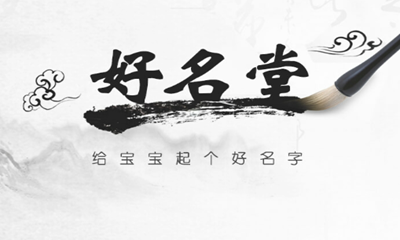 好名堂
给宝宝起个好名字